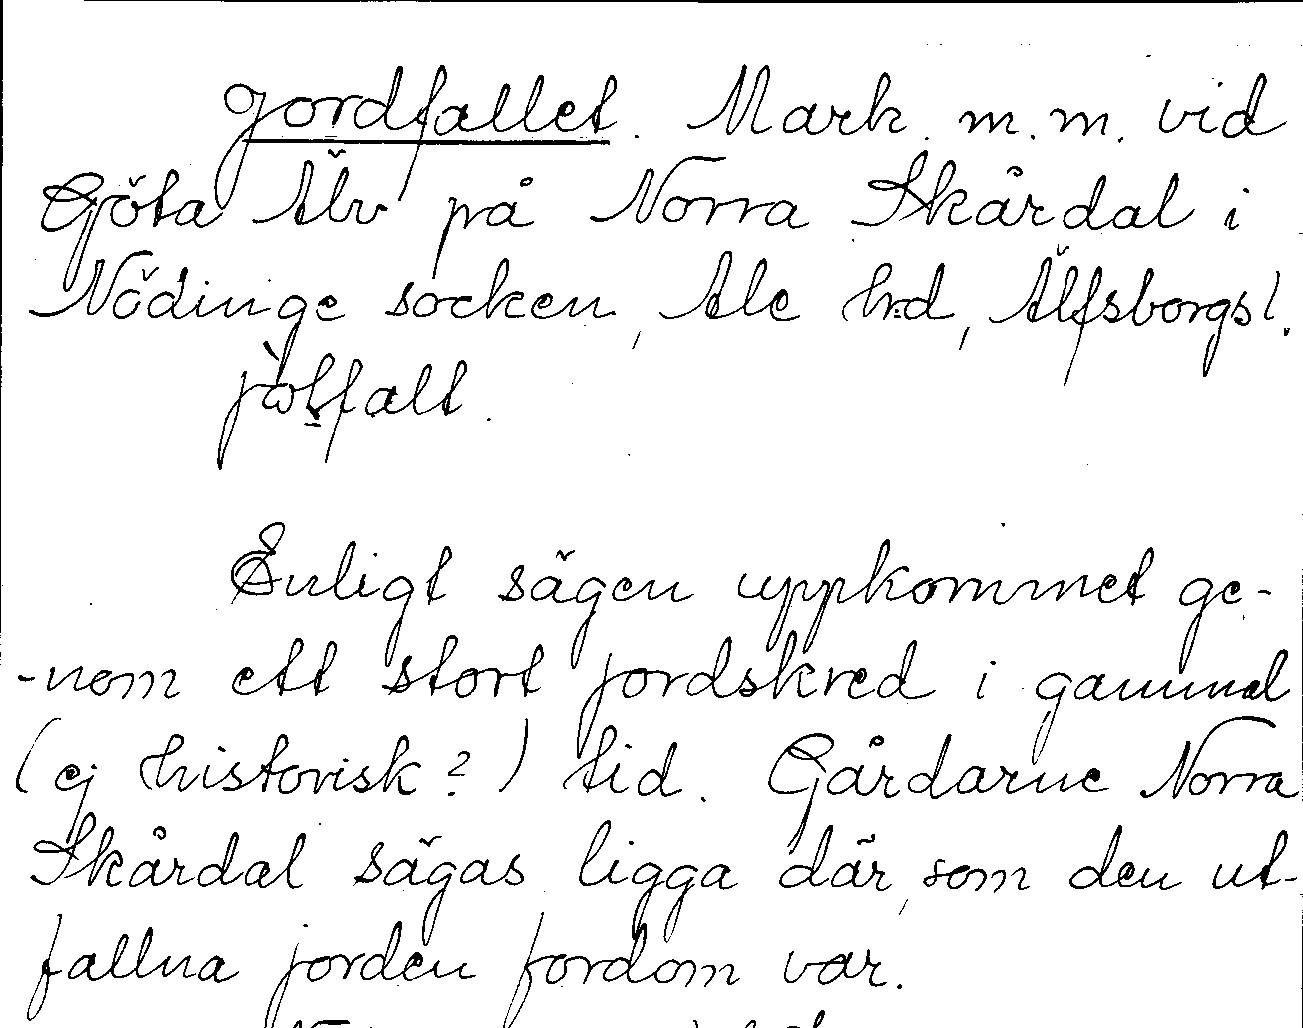 Jordfallet. Mark m.m. vid
Göta Älv på Norra Skårdal i
Nödinge socken, Ale hrd, Älfsborgs l.
Enligt sägen uppkommet ge-
-nom ett stort jordskred i gammal
(ej historisk?) tid. Gårdarne Norra
Skårdal sägas ligga där, som den ut-
fallna jorden fordom var.